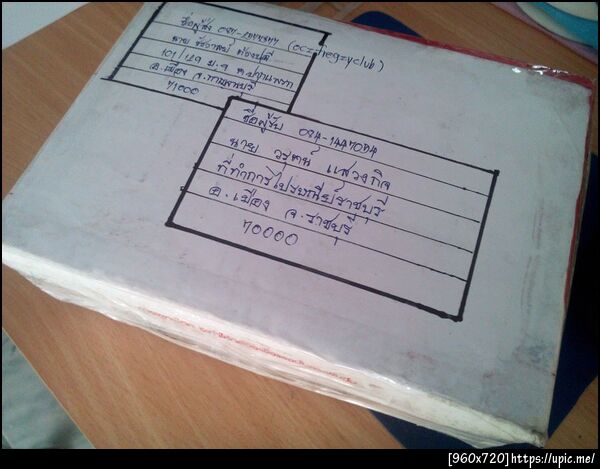 ชื่อผู้ส่ง
นาย
(ocz-thegzyclub)
101/129 ม.9 ต.ปากแพรก
อ.เมือง จ.กาญจนบุรี
71000
ชื่อผู้รับ
นาย วรุตน์ แสวงกิจ
ที่ทำการไปรษณีย์ราชบุรี
อ.เมือง จ.ราชบุรี
70000
[960x720]https://upic.me/